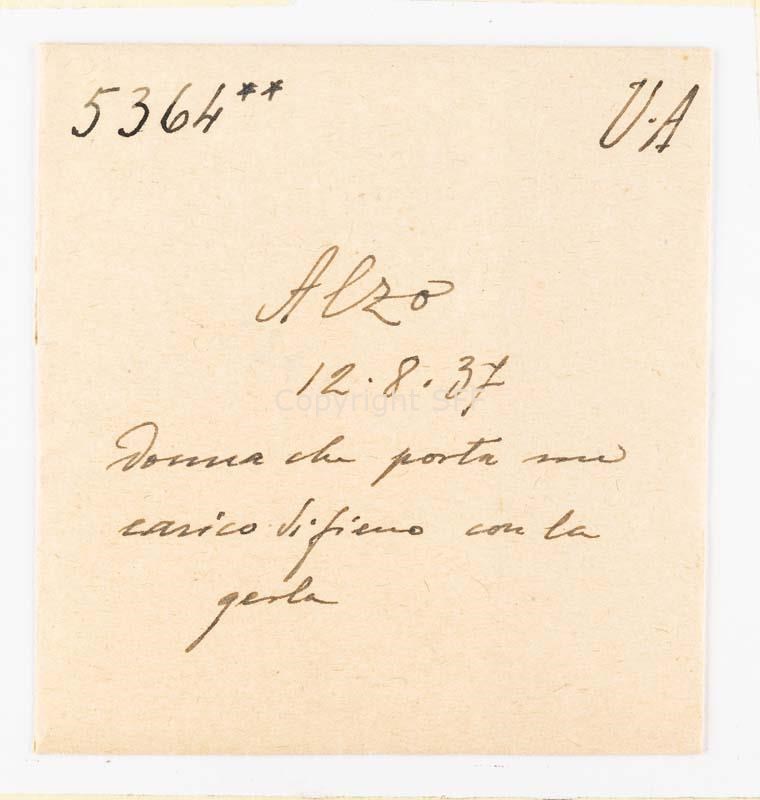 5364** V.A
Alzo
12.8.37
Copyright SFF
donna che porta un
carico di fieno con la
gerla